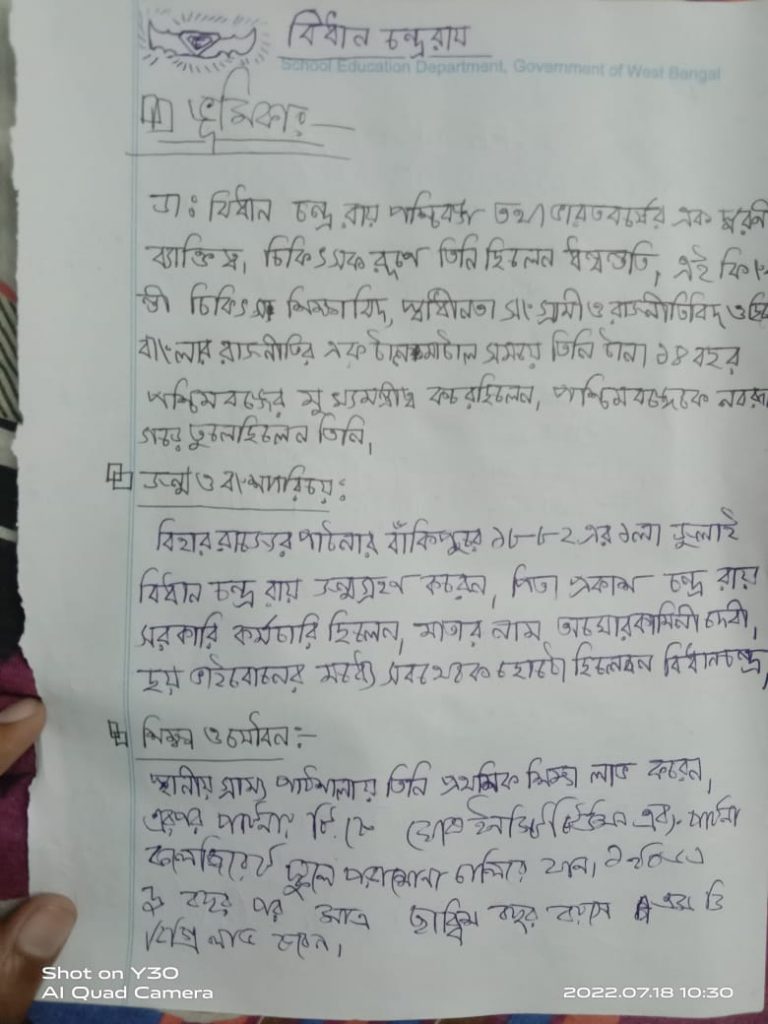 বিধান চন্দ্র রায়
School Education Department, Government of West Bengal
ভূমিকাঃ
ডাঃ বিধান চন্দ্র রায় পশ্চিমবঙ্গ তথা ভারতবর্ষের এক
ব্যাক্তিত্ব, চিকিৎসক রূপে তিনি ছিলেন এই
চিকিৎসক শিক্ষাবিদ, স্বাধীনতা সংগ্রামী ও রাজনীতিবিদ ও
বাংলার রাজনীতির এক টালমাটাল সময়ে তিনি টানা ১৪ বছর
পশ্চিমবঙ্গের মুখ্যমন্ত্রীত্ব করেছিলেন, পশ্চিমবঙ্গকে
গড়ে তুলেছিলেন তিনি,
জন্ম ও বংশপরিচয়ঃ
বিহার রাজ্যের পাটনার বাঁকিপুরে ১৮৮২ এর ১লা জুলাই
বিধান চন্দ্র রায় জন্মগ্রহণ করেন, পিতা প্রকাশ চন্দ্র রায়
সরকারি কর্মচারি ছিলেন, মাতার নাম অঘোরকামিনী দেবী,
ছয় ভাইবোনের মধ্যে সবথেকে ছোটো ছিলেন বিধানচন্দ্র,
শিক্ষা ও যৌবন:-
স্থানীয় গ্রাম্য পাঠশালায় তিনি প্রাথমিক শিক্ষা লাভ করেন,
এরপর পাটনার টি.কে ঘোষ ইনস্টিটিউশন এবং পাটনা
কলেজিয়েট স্কুলে পড়াশোনা চালিয়ে যান,
বছর পর মাত্র ছাব্বিশ বছর বয়সে এম ডি
ডিগ্রি লাভ করেন।
Shot on Y30
AI Quad Camera
2022.07.18 10:30